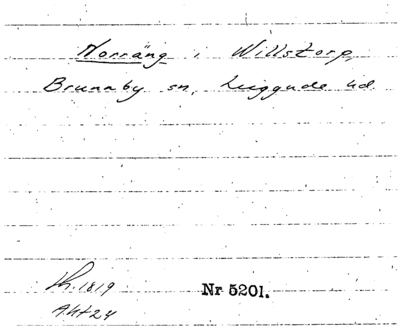 Norräng i Willstorp,
Brunnby sn, Luggude hd.
Lk. 1819
Nr 5201.
Akt 24